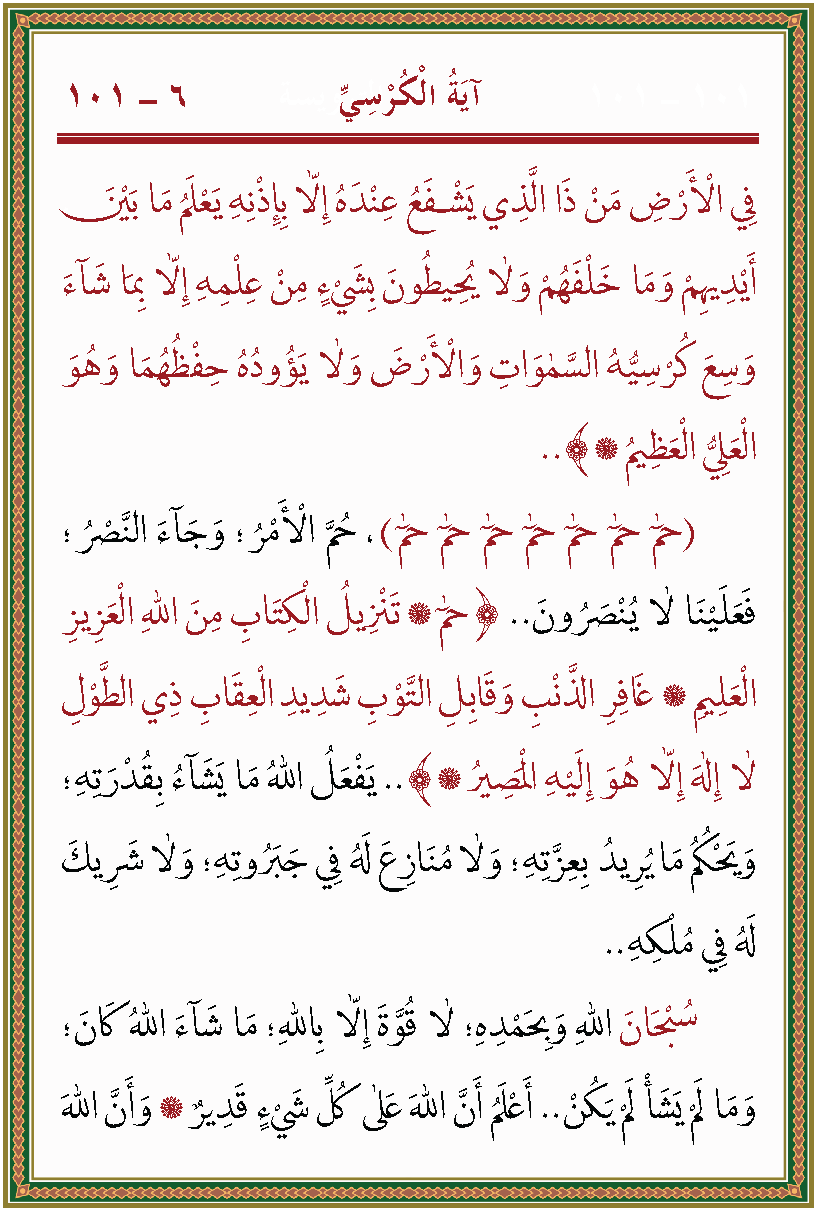 آيَةُ الْكُرْسِيِّ ٦ ــ ١٠١
فِي الْأَرْضِ مَنْ ذَا الَّذِي يَشْفَعُ عِنْدَهُ إِلَّا بِإِذْنِهِ يَعْلَمُ مَا بَيْنَ
أَيْدِيهِمْ وَمَا خَلْفَهُمْ وَلَا يُحِيطُونَ بِشَيْءٍ مِنْ عِلْمِهِ إِلَّا بِمَا شَآءَ
وَسِعَ كُرْسِيُّهُ السَّمٰوَاتِ وَالْأَرْضَ وَلَا يَؤُودُهُ حِفْظُهُمَا وَهُوَ
الْعَلِيُّ الْعَظِيمُ ۞ ﴾..
(حمٓ حمٓ حمٓ حمٓ حمٓ حمٓ حمٓ)، حُمَّ الْأَمْرُ؛ وَجَآءَ النَّصْرُ؛
فَعَلَيْنَا لَا يُنْصَرُونَ.. ﴿ حمٓ ۞ تَنْزِيلُ الْكِتَابِ مِنَ اللهِ الْعَزِيزِ
الْعَلِيمِ ۞ غَافِرِ الذَّنْبِ وَقَابِلِ التَّوْبِ شَدِيدِ الْعِقَابِ ذِي الطَّوْلِ
لَا إِلٰهَ إِلَّا هُوَ إِلَيْهِ الْمَصِيرُ ۞ ﴾.. يَفْعَلُ اللهُ مَا يَشَآءُ بِقُدْرَتِهِ؛
وَيَحْكُمُ مَا يُرِيدُ بِعِزَّتِهِ؛ وَلَا مُنَازِعَ لَهُ فِي جَبَرُوتِهِ؛ وَلَا شَرِيكَ
لَهُ فِي مُلْكِهِ..
سُبْحَانَ اللهِ وَبِحَمْدِهِ؛ لَا قُوَّةَ إِلَّا بِاللهِ؛ مَا شَآءَ اللهُ كَانَ؛
وَمَا لَمْ يَشَأْ لَمْ يَكُنْ.. أَعْلَمُ أَنَّ اللهَ عَلٰى كُلِّ شَيْءٍ قَدِيرٌ ۞ وَأَنَّ اللهَ